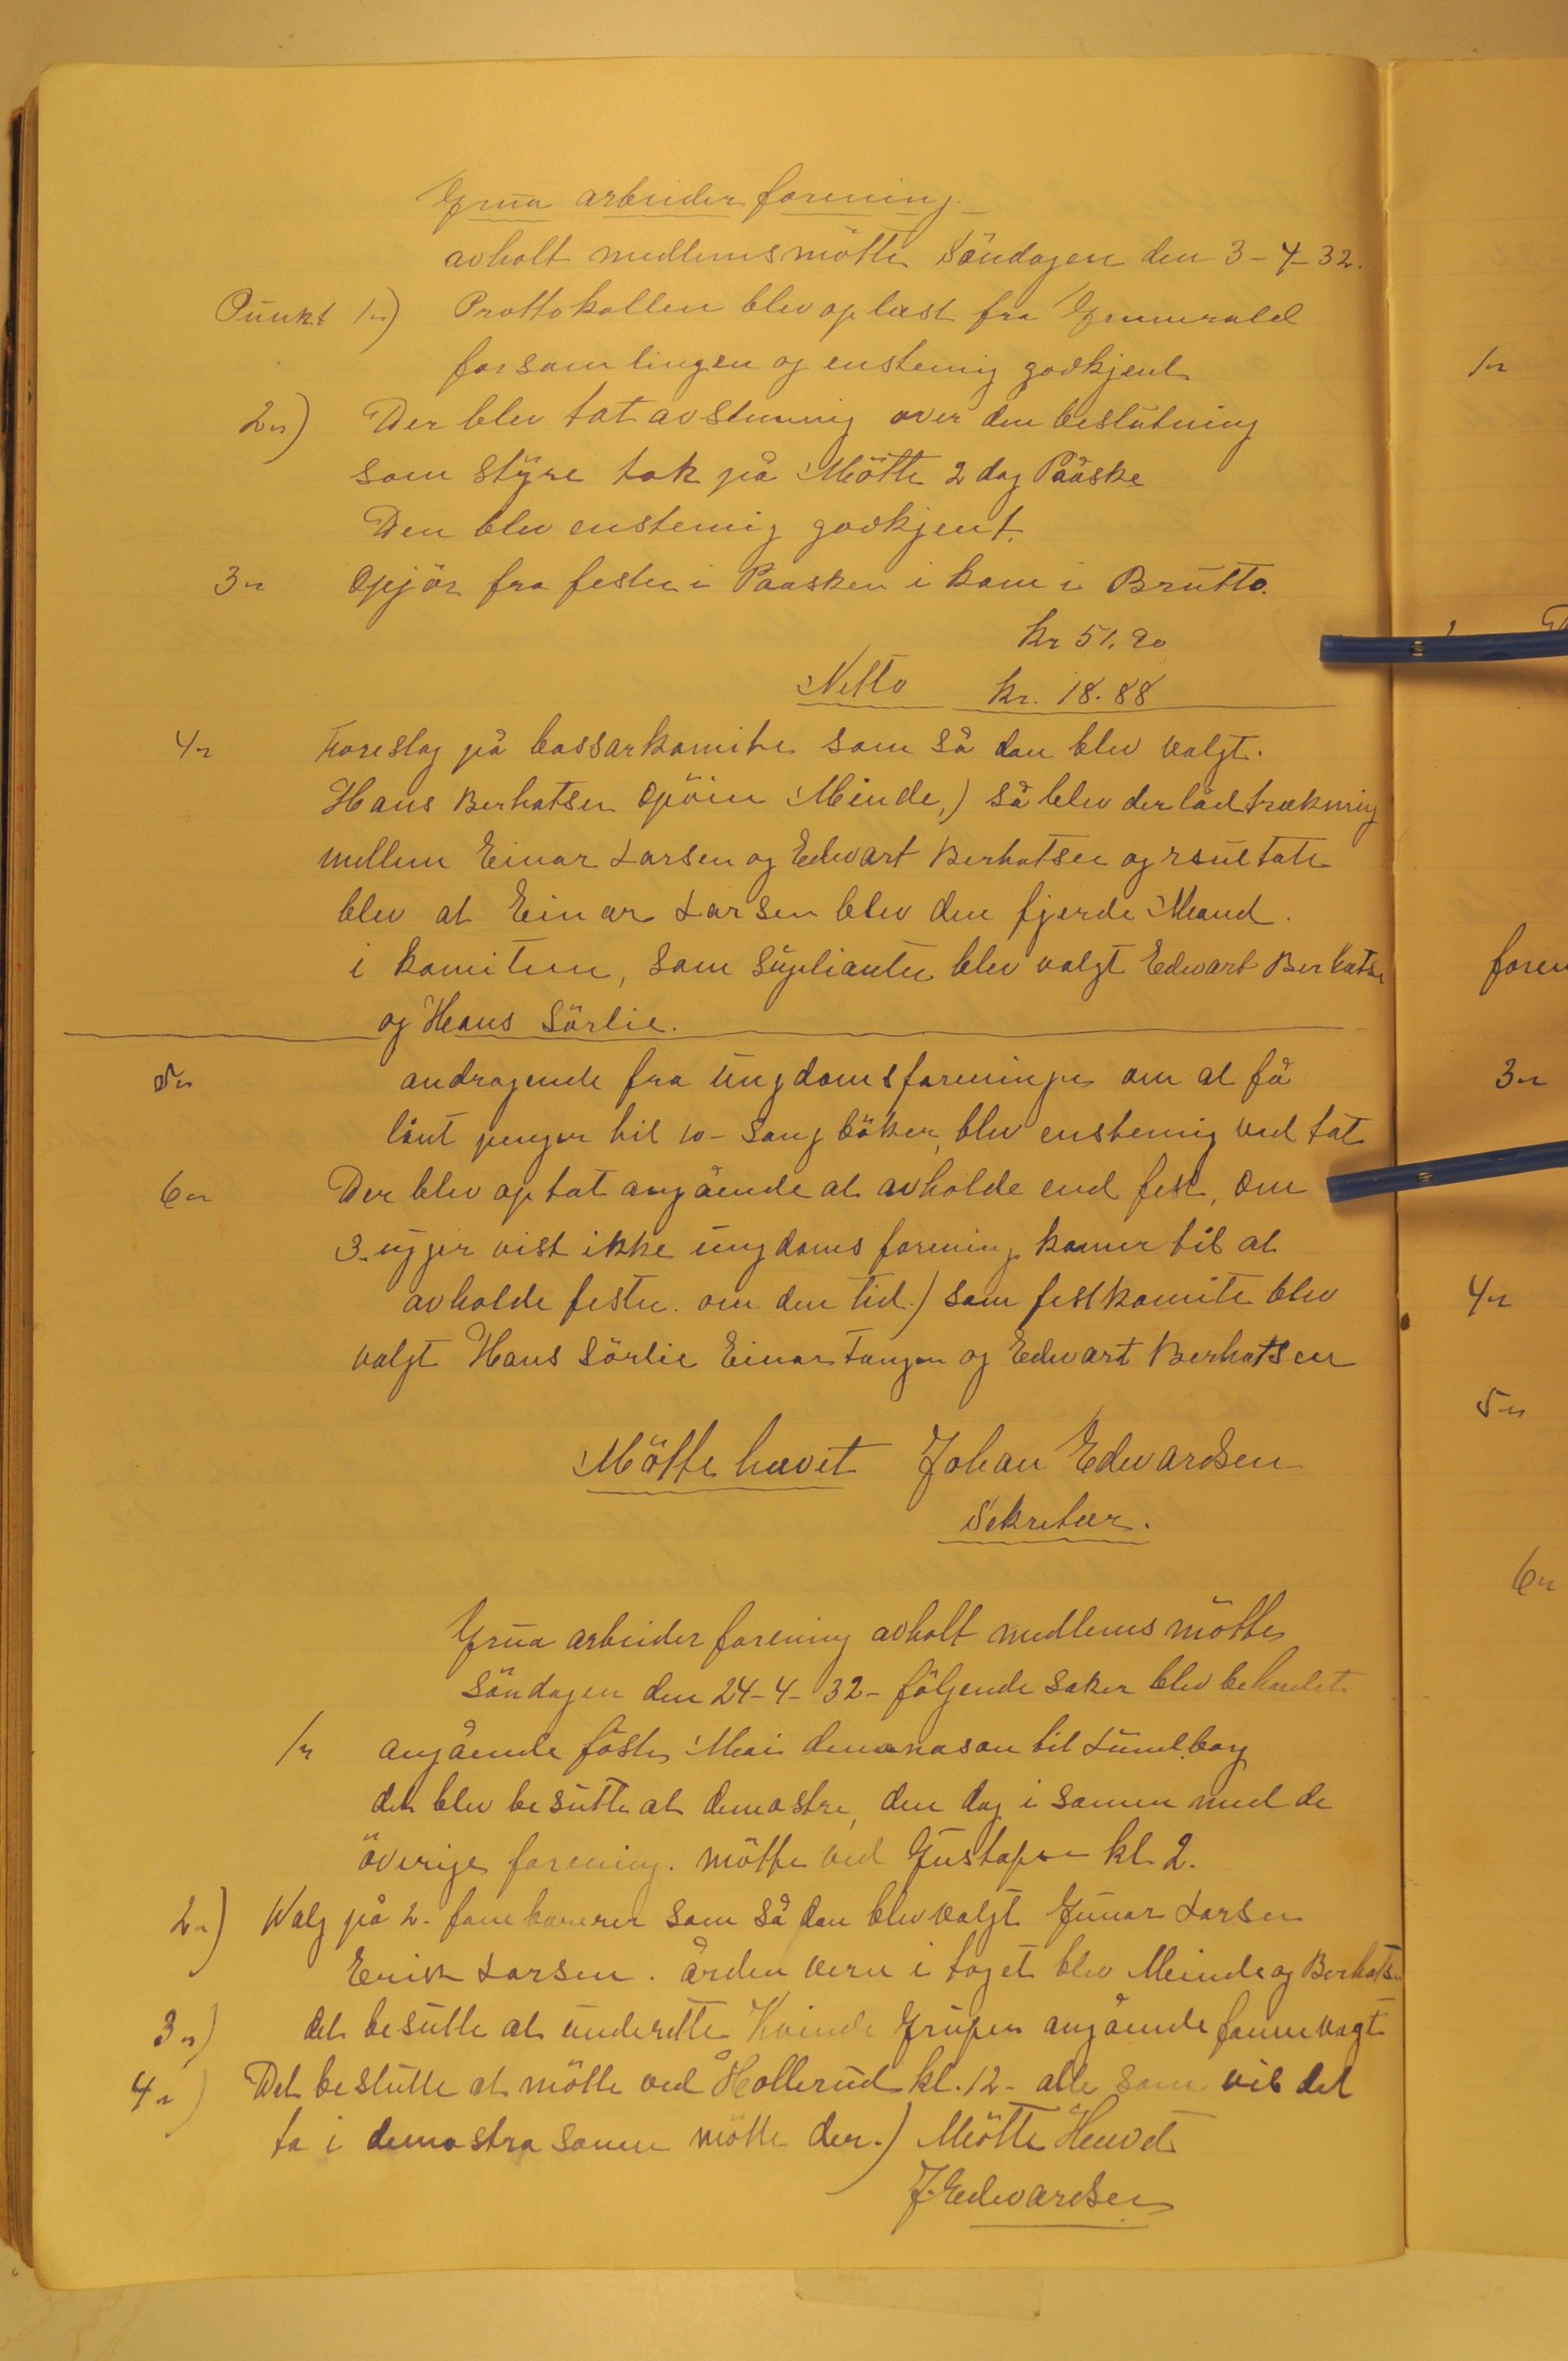 Grua arbeider forening
avholt medlemsmötte Söndagen den 3-4-32.
Punkt 1n) Prottokollen blev oplæst fra Genneralel
forsamlingen og enstemig godkjent
2n) Der blev tat avstemnig over den beslutning
som styre tok på Mötte 2 dag Pååske
Den blev enstemig godkjent.
3n Opjör fra festen i Paasken i kom i Brutto.
kr 51.20
Netto kr. 18.88
4n Foreslag på bassarkomite som så dan blev valgt.
Hans Berhatsen Minde,) så blev der lådtrækning
mellem Einar Larsen og Edvart Berhatsen og rsultate
blev at Einar Larsen blev den fjerde Mand.
i komiteen, som süplianter blev valgt Edvart Berhatsen
og Hans Sörlie.
5n andragende fra ungdomsforeninge om at få
lånt penger til 10- sangböker, blev enstemig ved tat
6n Der blev optat angående at avholde end fest, om
3 ugger vist ikke ungdoms forening komer til at
avholde festen om den tid.) som festkomite blev
valgt Hans Sörlie Einar Tangen og Edvart Berhatsen
Mötte hævet Johan Edvardsen
Sekretær.
Grua arbeider forening avholt medlems mötte
Söndagen den 24-4-32- fölgende saker blev behandlet
1n angående föste Mai til Lundborg
det blev besutte at demostre, den dag i samen med de
överige forening. mötte ved kl. 2.
2n) Valg på 2. fanebærerer som så dan blev valgt Gunar Larsen
Erick Larsen. ården vern i toget blev Minde og Berhatsen
3n) det besutte at underette Kvinde Grupen angående fannevagt
4n) Det beslutte at mötte ved Hollerud kl. 12- alle som vil del
ta i demostra sonen mötte der.) Mötte Hevet
J. Edvardsen
1n
foren
3n
4n
5n
6n